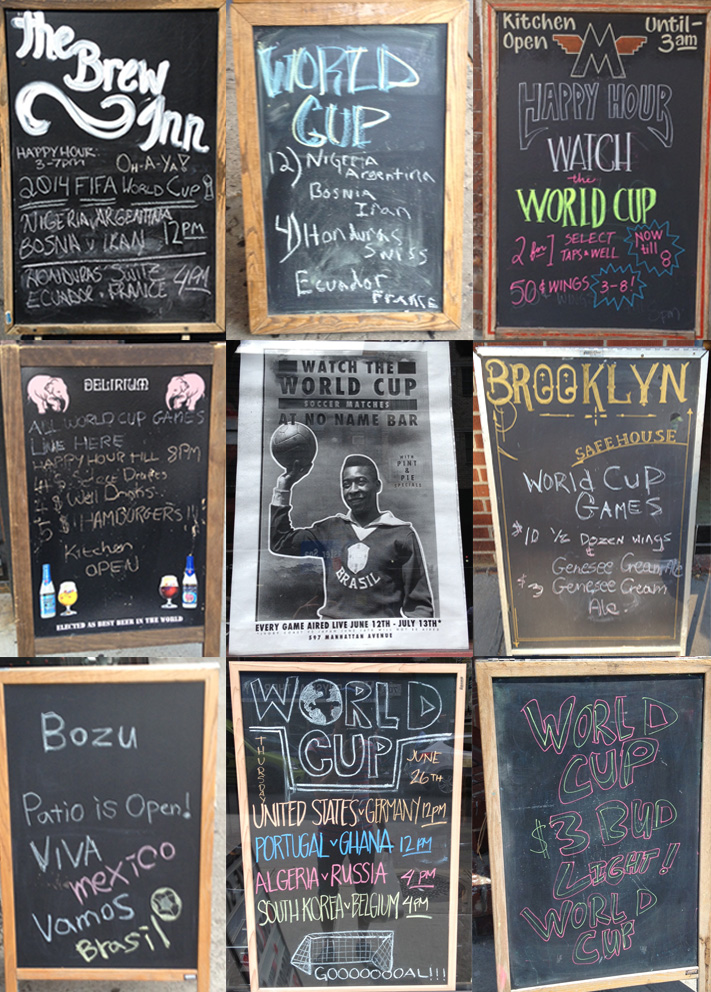 the
Brew
Inn
HAPPY HOUR:
3-7PM
OH-A-YA!
2014 FIFA WORLD CUP
NIGERIA v ARGENTINA
BOSNIA v IRAN
12PM
HONDURAS v SWITZ
ECUADOR v FRANCE
4PM
WORLD
CUP
12) NIGERIA
Argentina
BOSNIA
Iran
4) Honduras
SWISS
Ecuador
FRANCE
Kitchen
Open
Until-
3am
M
HAPPY HOUR
WATCH
the
WORLD CUP
2 for 1 SELECT
TAPS & WELL
NOW
till
8
50¢ WINGS
3-8!
DELIRIUM
ALL WORLD CUP GAMES
LIVE HERE
HAPPY HOUR TILL 8PM
4$ Select Drafts
4$ Well
5$ HAMBURGERS!!!
Kitchen
OPEN
ELECTED AS BEST BEER IN THE WORLD
WATCH THE
WORLD CUP
SOCCER MATCHES
AT NO NAME BAR
WITH
PINT
&
PIE
SPECIALS
BRASIL
EVERY GAME AIRED LIVE JUNE 12TH - JULY 13TH*
597 MANHATTAN AVENUE
BROOKLYN
SAFEHOUSE
WORLD CUP
GAMES
$10 1/2 DOZEN WINGS
&
Genesee Cream Ale
$3 Genesee Cream
Ale.
Bozu
Patio is Open!
VIVA
mexico
Vamos
Brasil
WORLD
CUP
THURSDAY
JUNE
26TH
UNITED STATES v GERMANY 12PM
PORTUGAL v GHANA 12PM
ALGERIA v RUSSIA 4PM
SOUTH KOREA v BELGIUM 4PM
GOOOOOOOAL!!!
WORLD
CUP
$3 BUD
LIGHT!!
WORLD
CUP